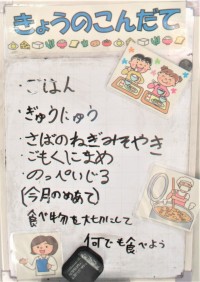 きょうのこんだて
・ごはん
・ぎゅうにゅう
・さばのねぎみそやき
・ごもくにまめ
・のっぺいじる
(今月のめあて)
食べ物を大切にして
何でも食べよう